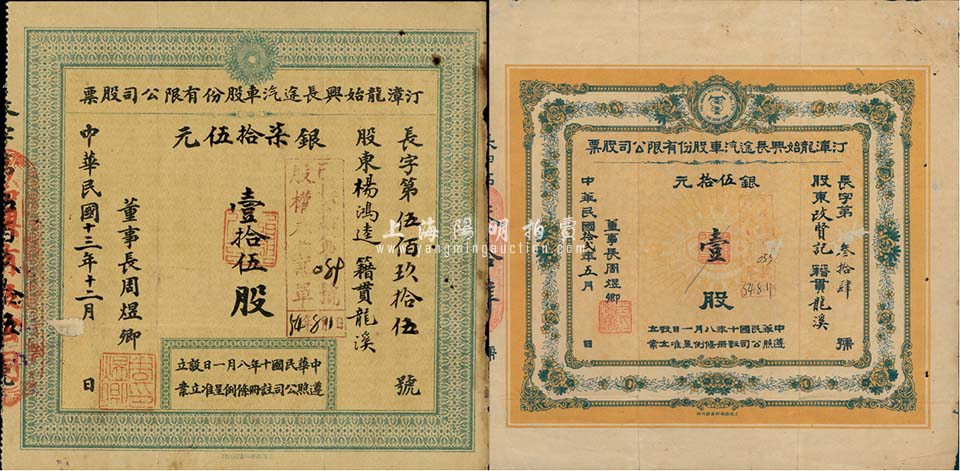 汀漳龍始興長途汽車股份有限公司股票
長字第伍佰玖拾伍號
股東楊鴻逵 籍貫龍溪
銀柒拾伍元
壹拾伍股
中華民國十年八月一日設立
遵照公司註冊條例呈准立業
董事長周煜卿
中華民國十三年十二月 日
股權
084
54.8.11
汀漳龍始興長途汽車股份有限公司股票
長字第 叁拾肆 號
股東政賢記 籍貫龍溪
銀伍拾元
壹股
中華民國十年八月一日設立
遵照公司註冊條例呈准立業
董事長周煜卿
54.8.11
上海陽明拍賣
www.yangmingauction.com